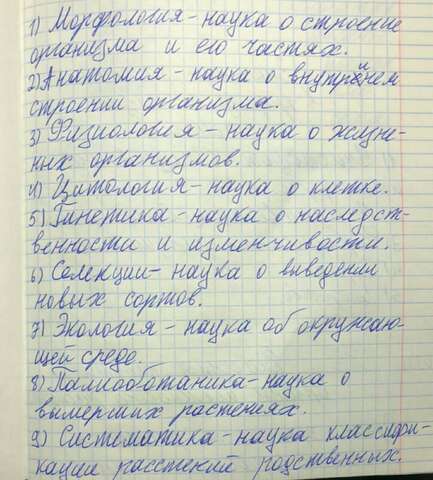 1) Морфология - наука о строение
организма и его частях.
2) Анатомия - наука о внутреннем
строении организма.
3) Физиология - наука о жизне-
нных организмов.
4) Цитология - наука о клетке.
5) Гинетика - наука о наследст-
венности и изменчивости.
6) Селекции - наука о виведении
новых сортов.
7) Экология - наука об окружаю-
щей среде.
8) Палиооботаника - наука о
вымерших растениях.
9) Систематика - наука классифи-
кации расстений родственных.